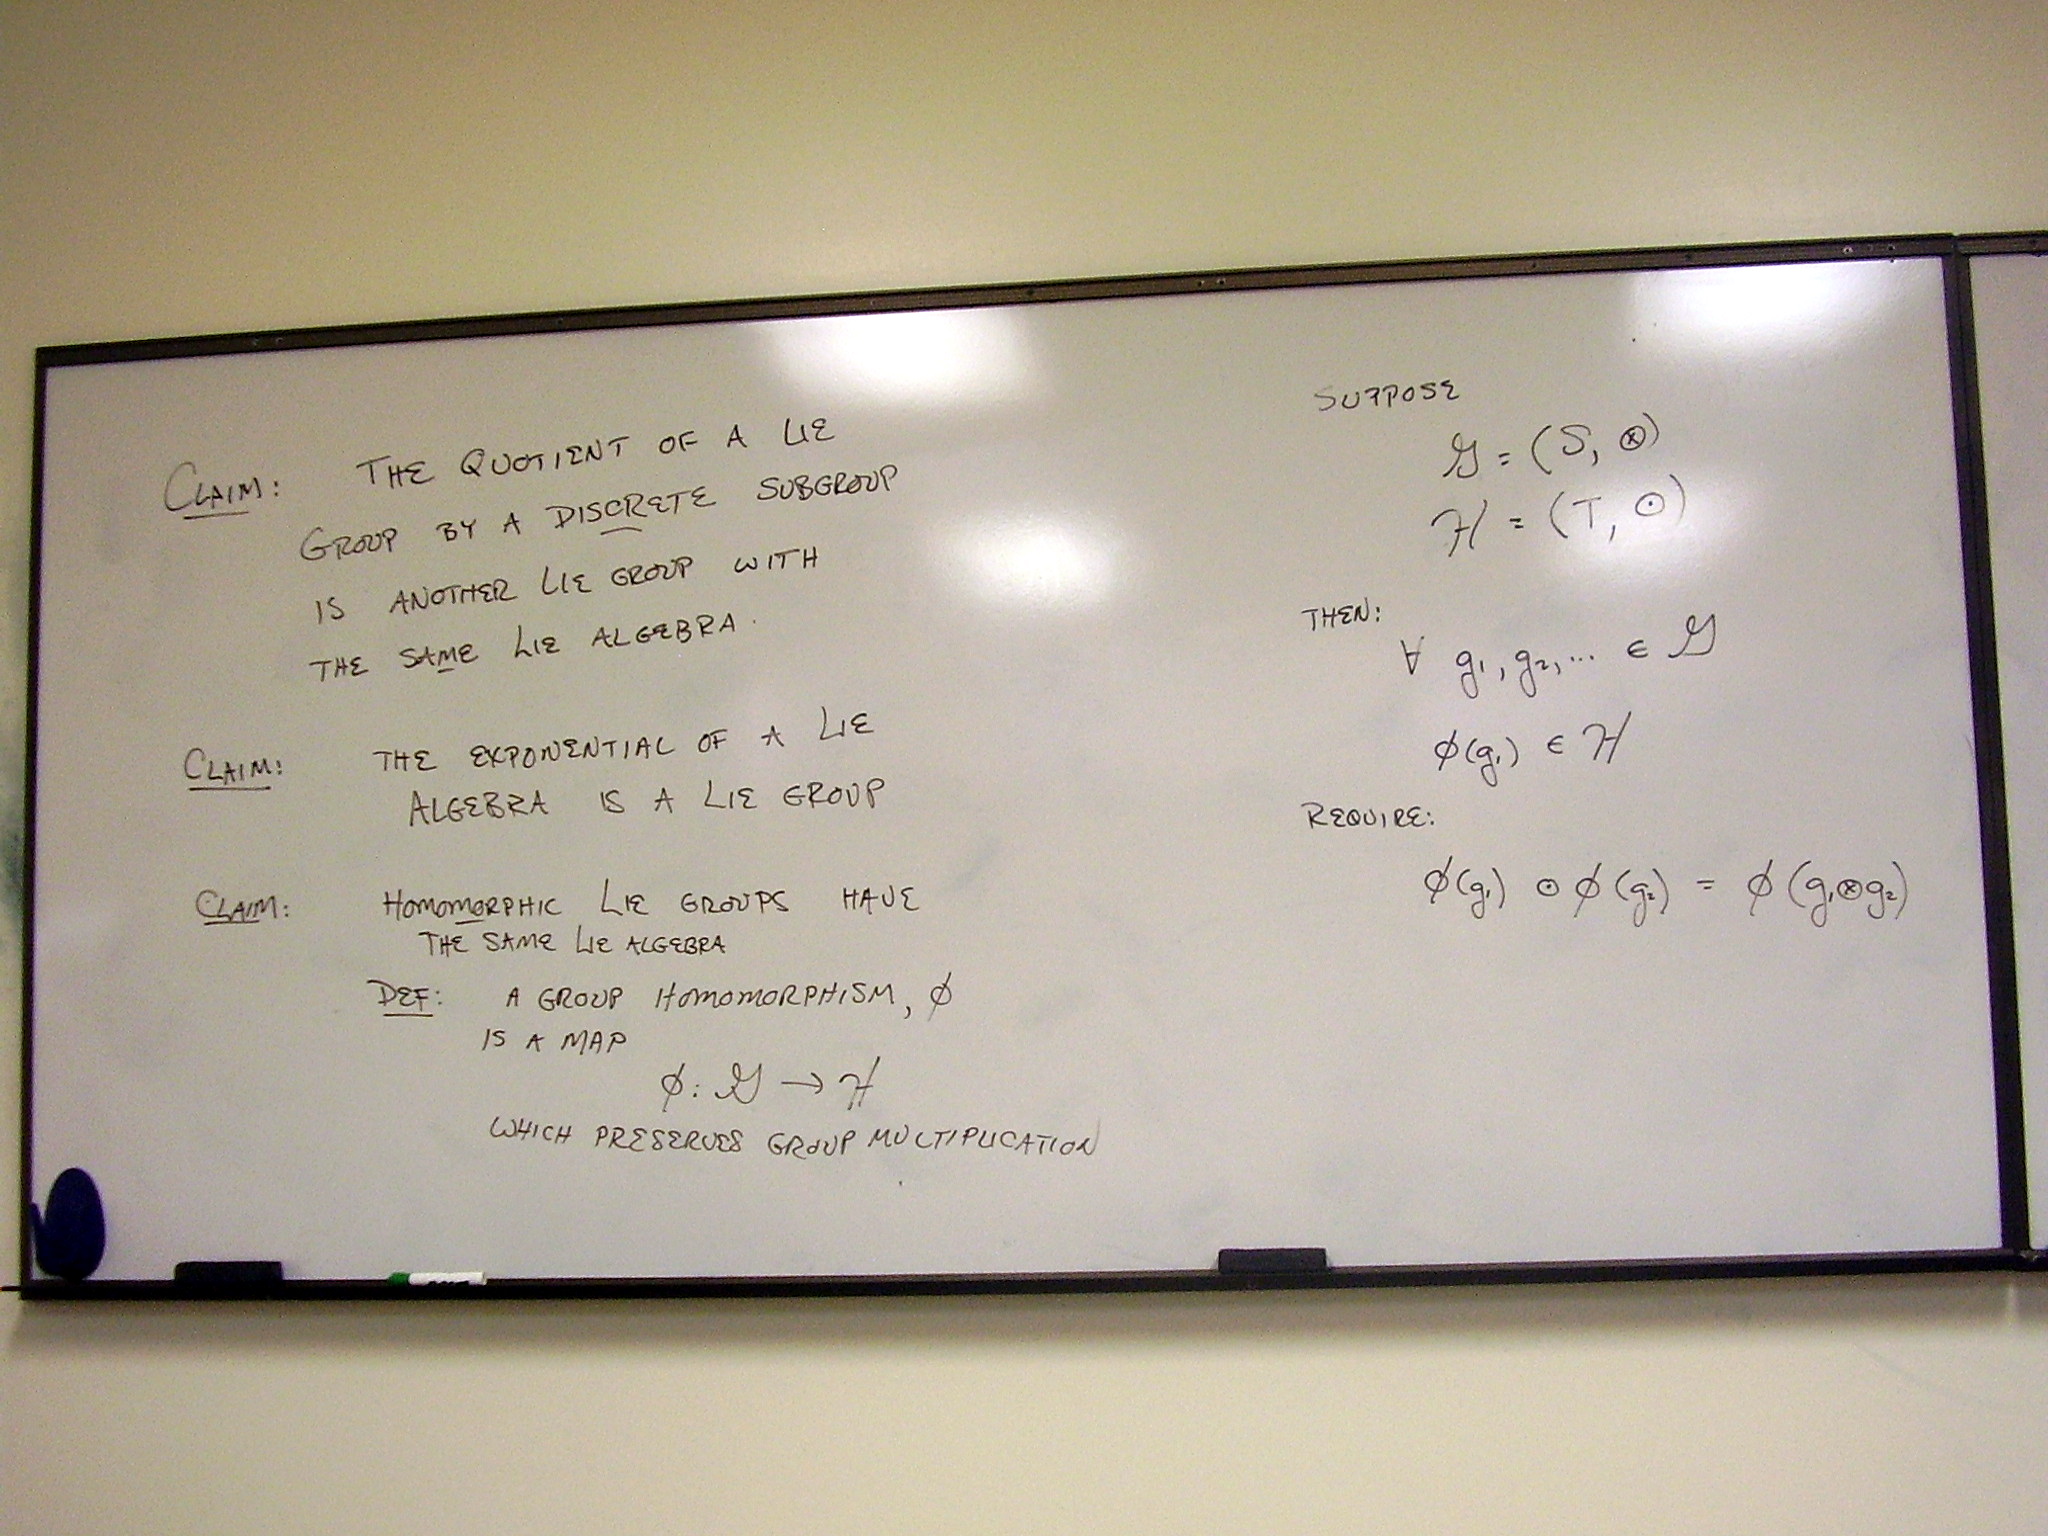 CLAIM: THE QUOTIENT OF A LIE
GROUP BY A DISCRETE SUBGROUP
IS ANOTHER LIE GROUP WITH
THE SAME LIE ALGEBRA.
CLAIM: THE EXPONENTIAL OF A LIE
ALGEBRA IS A LIE GROUP
CLAIM: HOMOMORPHIC LIE GROUPS HAVE
THE SAME LIE ALGEBRA
DEF: A GROUP HOMOMORPHISM, ϕ
IS A MAP
ϕ: 𝒢 → ℋ
WHICH PRESERVES GROUP MULTIPLICATION
SUPPOSE
𝒢 = (S, ⊗)
ℋ = (T, ⊙)
THEN:
∀ g₁, g₂, ... ∈ 𝒢
ϕ(g₁) ∈ ℋ
REQUIRE:
ϕ(g₁) ⊙ ϕ(g₂) = ϕ(g₁⊗g₂)